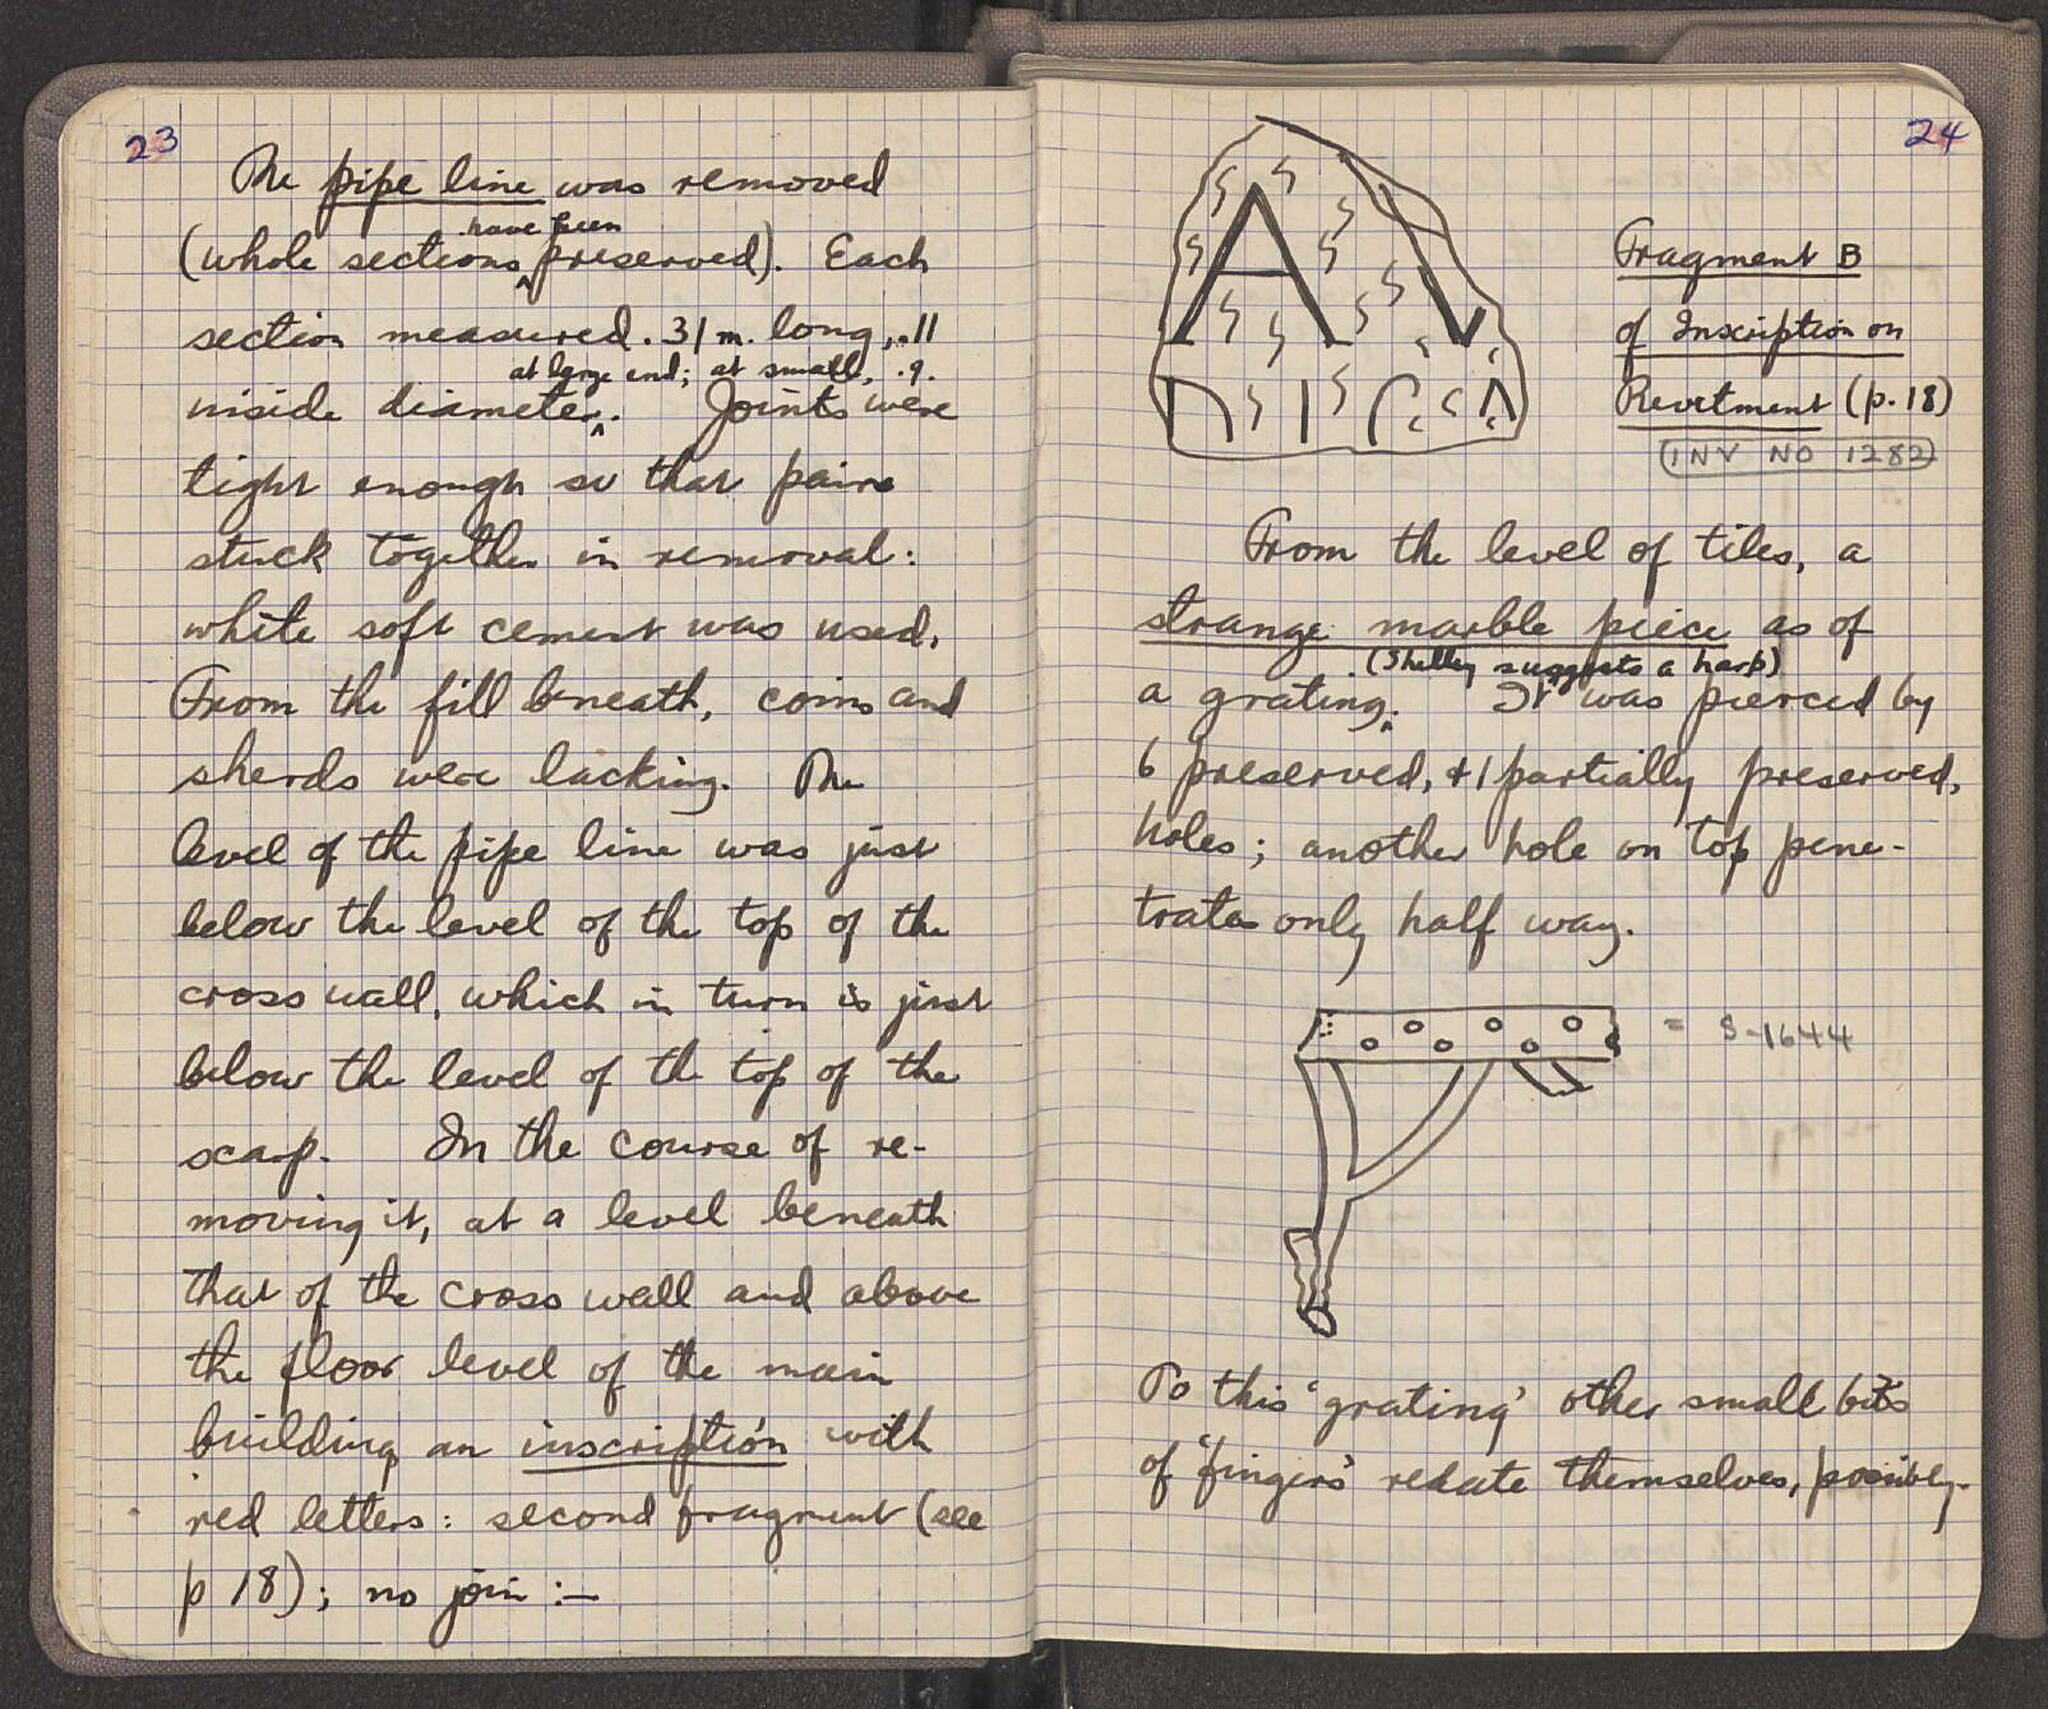 23
The pipe line was removed
(whole sections have been preserved). Each
section measured .31 m. long, .11
inside diameter at large end; at small, .9. Joints were
tight enough so that pairs
stuck together in removal:
white soft cement was used.
From the fill beneath, coins and
sherds were lacking. The
level of the pipe line was just
below the level of the top of the
cross wall, which in turn is just
below the level of th top of the
scarp. In the course of re-
moving it, at a level beneath
that of the cross wall and above
the floor level of the main
building an inscription with
red letters: second fragment (see
p 18); no join :—
24
Fragment B
of Inscription on
Revetment (p. 18)
INV NO 1282
From the level of tiles, a
strange marble piece as of
a grating (Shelley suggests a harp). It was pierced by
6 preserved, +1 partially preserved,
holes; another hole on top pene-
trates only half way.
= S-1644
To this 'grating' other small bits
of 'fingers' relate themselves, possibly.